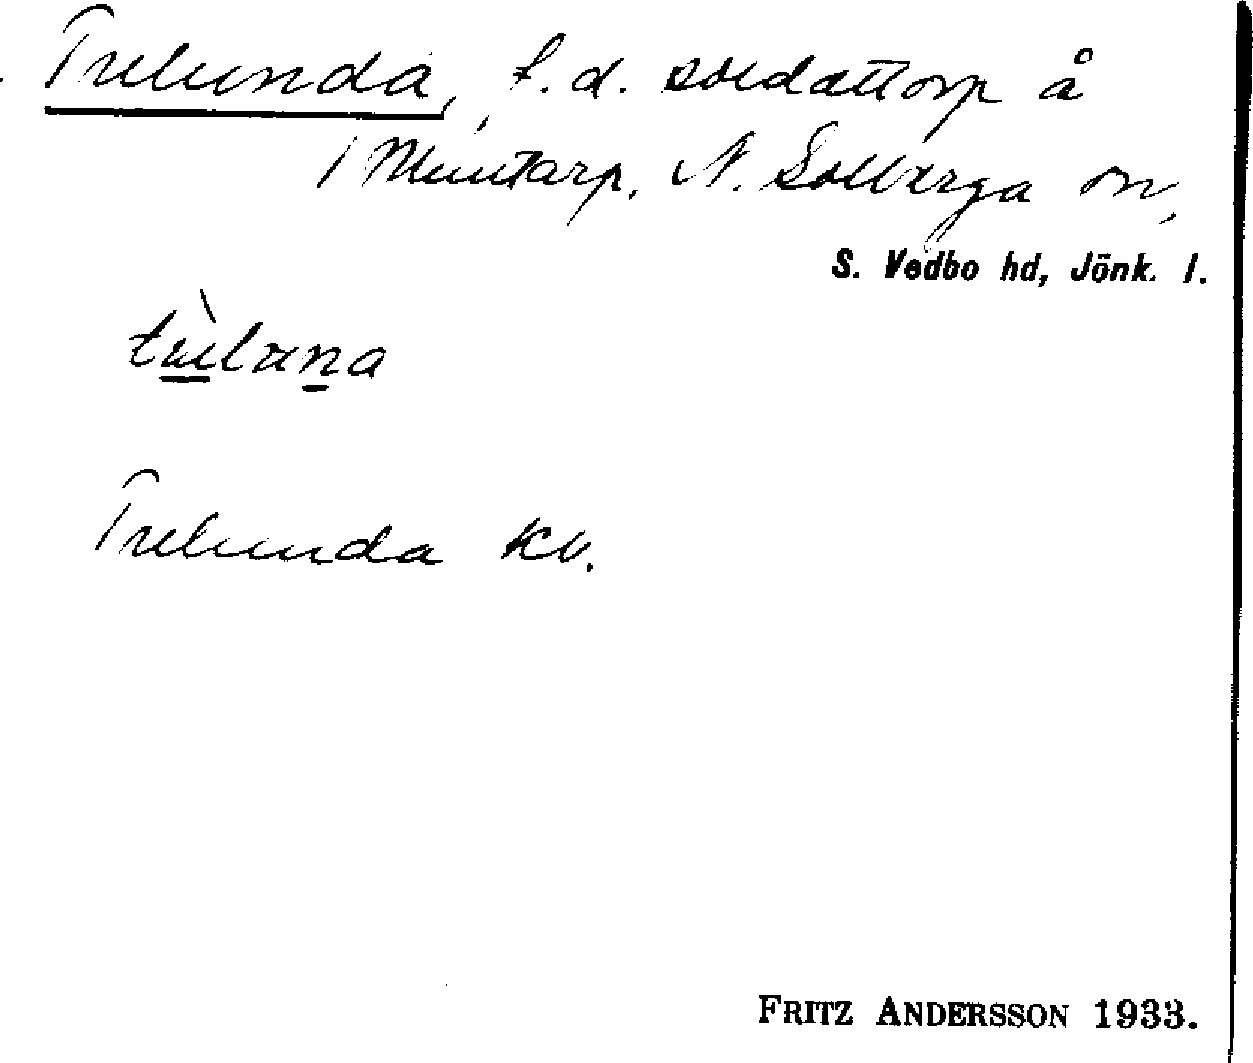 Trelunda, f.d. soldattorp å
Muntarp. N. Solberga sn,
S. Vedbo hd, Jönk. l.
Trelunda kv.
FRITZ ANDERSSON 1933.